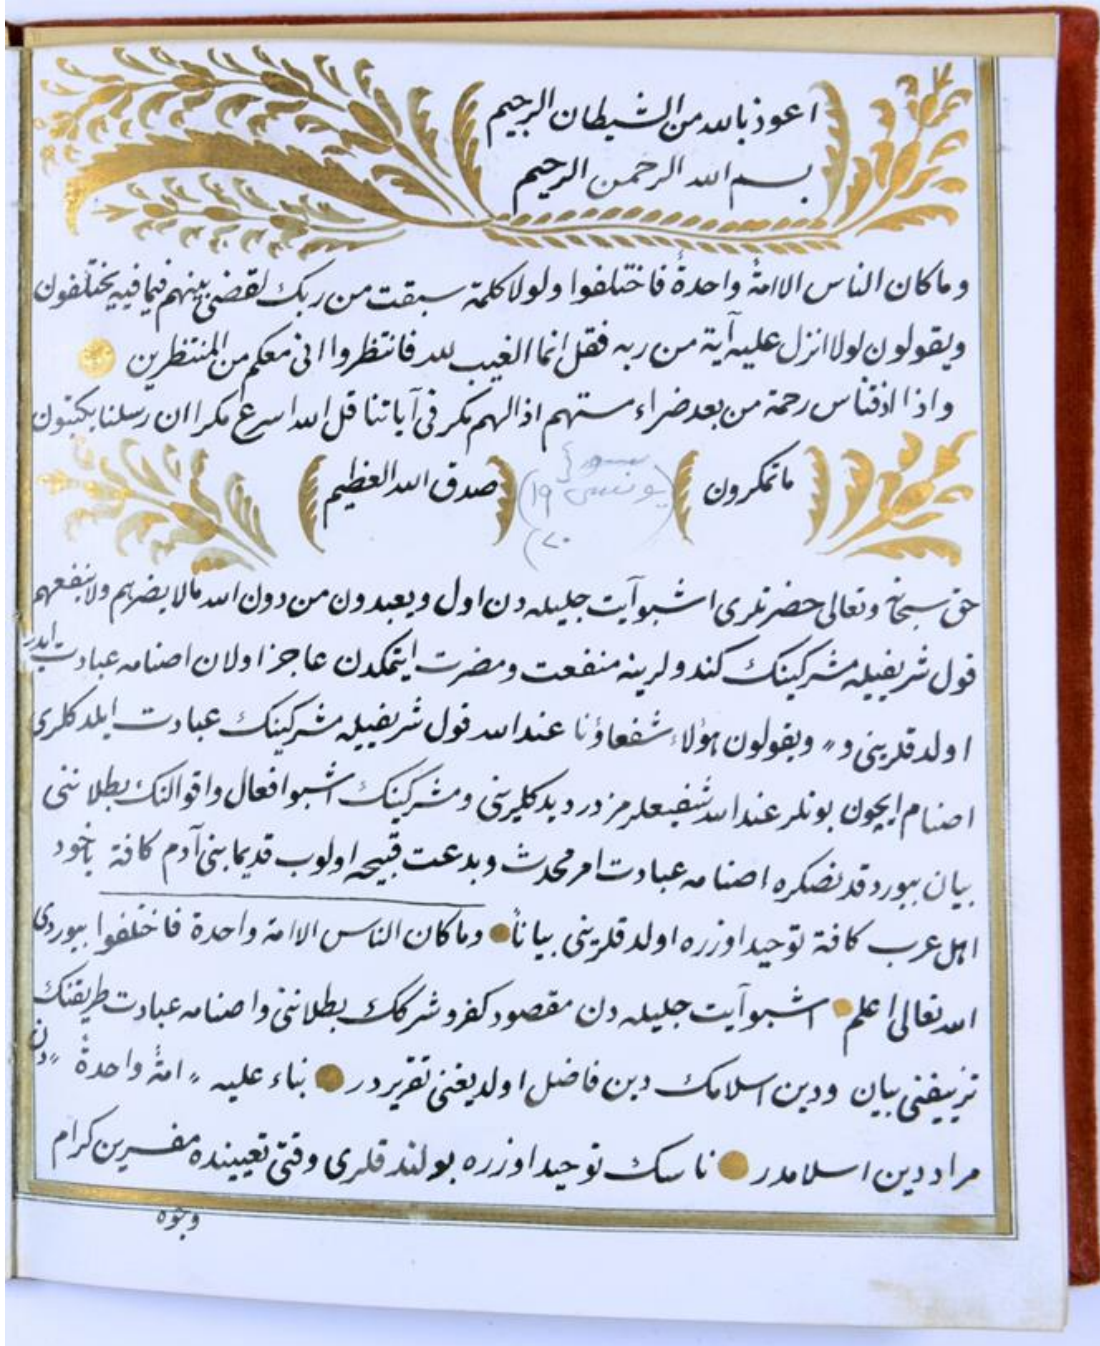 اعوذ بالله من الشيطان الرجيم
بسم الله الرحمن الرحيم
وما كان الناس الا امةً واحدةً فاختلفوا ولولا كلمة سبقت من ربك لقضى بينهم فيما فيه يختلفون
ويقولون لولا انزل عليه آية من ربه فقل انما الغيب لله فانتظروا انى معكم من المنتظرين
واذا اذقنا س رحمة من بعد ضراء مستهم اذا لهم مكر فى آياتنا قل الله اسرع مكرا ان رسلنا يكتبون
ما تمكرون
يونس ١٩
٢٠
صدق الله العظيم
حق سبحانه وتعالى حضرتلرى اشبو آيت جليله دن اول ويعبدون من دون الله ما لا يضرهم ولا ينفعهم
قول شريفيله مشركينك كندولرينه منفعت ومضرت ايتمكدن عاجز اولان اصنامه عبادت ايدر
اولدقلرينى و ״ ويقولون هؤلاء شفعاؤنا عند الله قول شريفيله مشركينك عبادت ايلدكلرى
اصنام ايچون بونلر عند الله شفيعلرمزدر ديدكلرينى ومشركينك اشبو افعال واقوالنك بطلاننى
بيان بيوردقدنصكره اصنامه عبادت امر محدث وبدعت قبيحه اولوب قديما بنى آدم كافة ياخود
اهل عرب كافة توحيد اوزره اولدقلرينى بياناً وما كان الناس الا امة واحدة فاختلفوا بيوردى
الله تعالى اعلم اشبو آيت جليله دن مقصود كفر وشركك بطلاننى واصنامه عبادت طريقنك
تزييفنى بيان ودين اسلامك دين فاضل اولديغنى تقريردر بناء عليه ״ امةً واحدةً ״ دن
مراد دين اسلامدر ناسك توحيد اوزره بولندقلرى وقتى تعيينده مفسرين كرام
وجوه